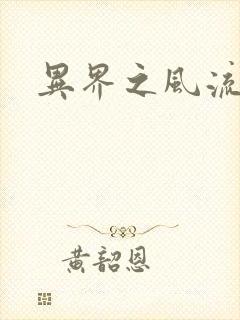 異界之風流
黄韶恩